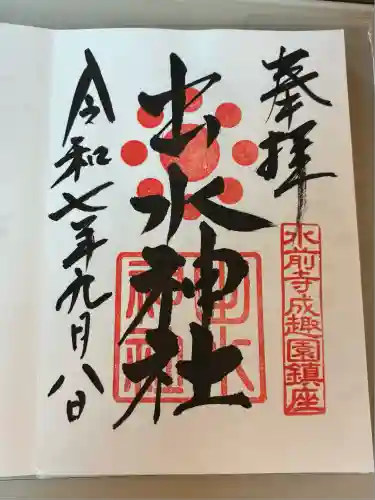 奉拝
水前寺成趣園鎮座
出水神社
出水神社
令和七年九月八日